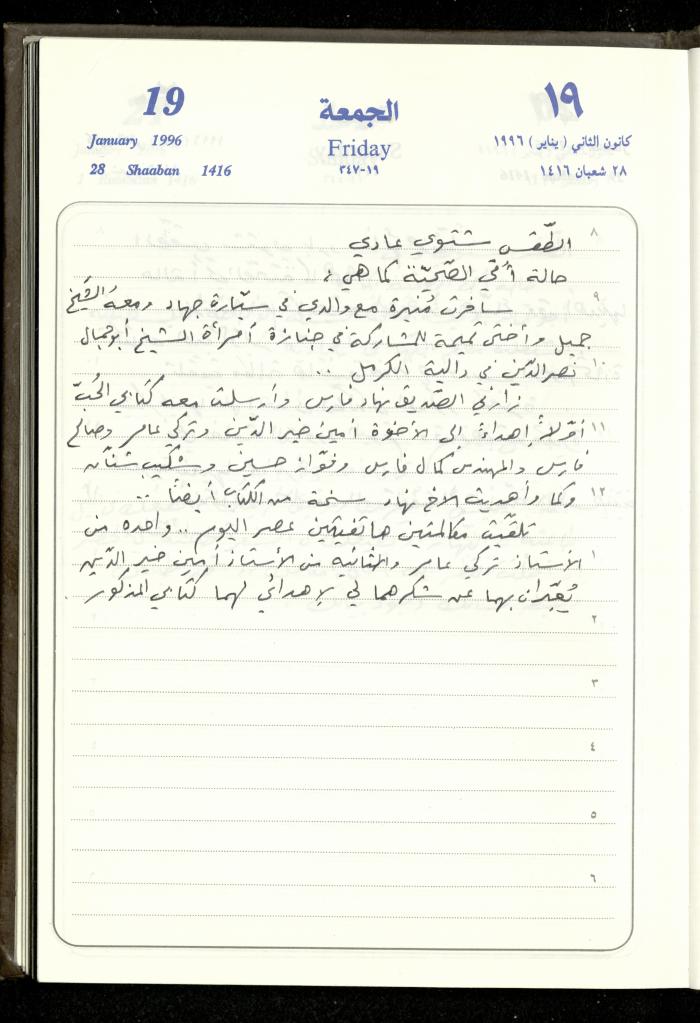 19
الجمعة
١٩
January 1996
Friday
كانون الثاني ( يناير ) ١٩٩٦
28 Shaaban 1416
١٩-٣٤٧
٢٨ شعبان ١٤١٦
٨
الطّقس شتوي عادي
حالة أمّي الصّحيّة كما هي ؛
٩
سافرت مُنيرة مع والدي في سيّارة جهاد ومعهُ الشّيخ
جميل وأختي تميمة للمشاركة في جنازة امرأة الشيخ أبو جمال
١٠
نصر الدّين في دالية الكرمل ..
زارني الصّديق نهاد فارس وأرسلت معه كتابي الحُبّ
١١
أوّلاً إهداءً إلى الأخوة أمين خير الدّين وتركي عامر وصالح
فارس والمهندس كمال فارس وفوّاز حسين وشكيب شنّان
١٢
وكما وأهديت الاخ نهاد نسخة من الكتاب أيضاً ..
تلقّيت مكالمتين هاتفيتين عصر اليوم .. واحده من
١
الأستاذ تركي عامر والثانيه من الأستاذ أمين خير الدّين
يُعبّران بهما عن شكرهما لي لإهدائي لهما كتابي المذكور .
٢
٣
٤
٥
٦